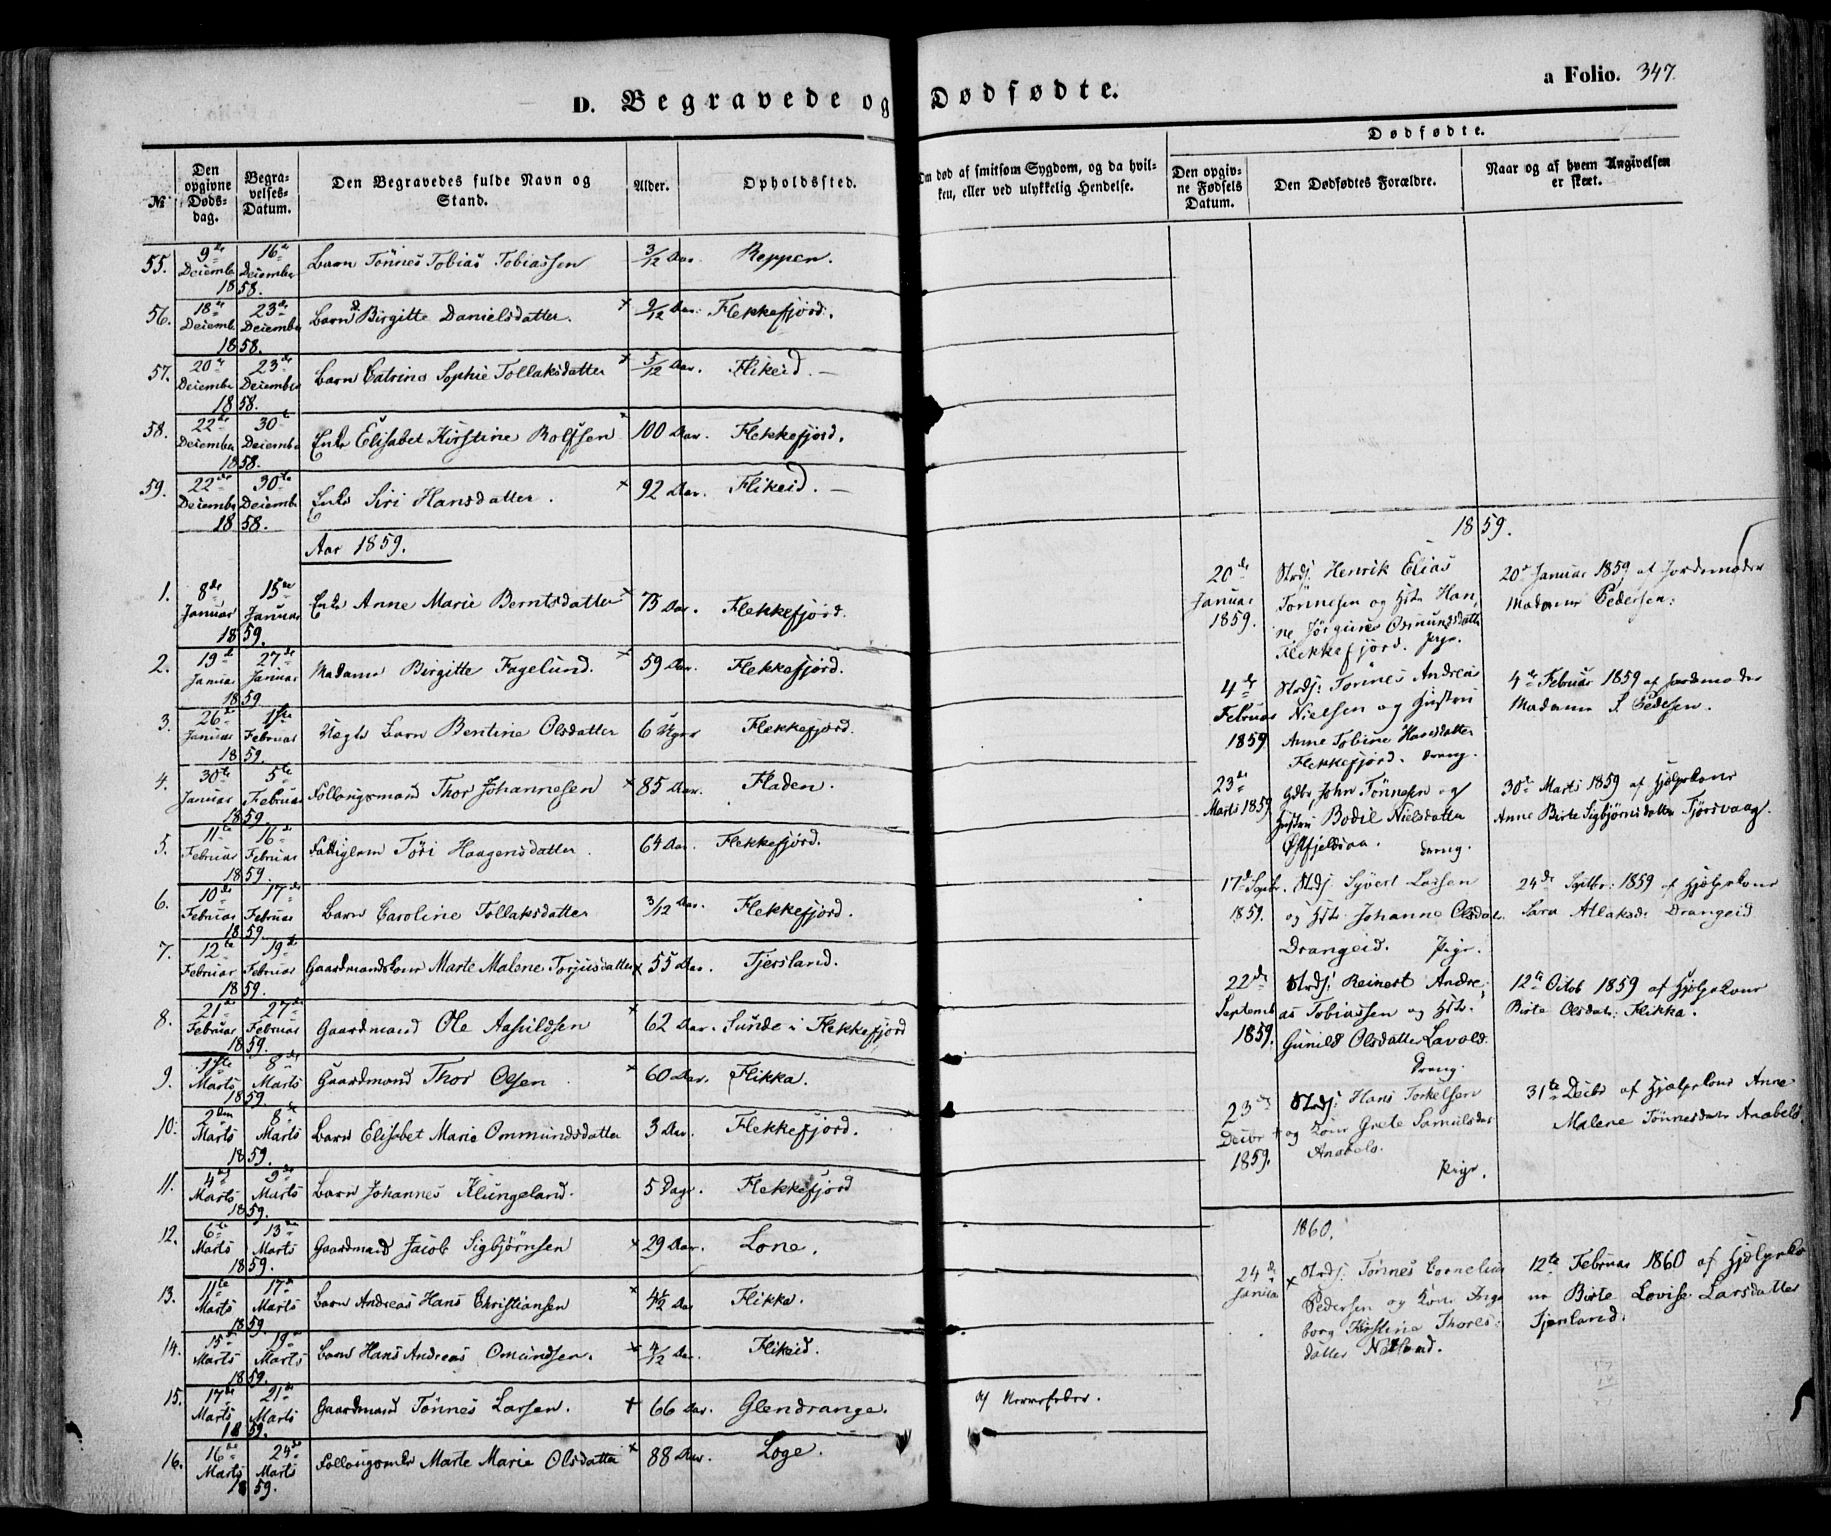 a Folio. 347.
D. Begravede og Dødfødte.
№
Den opgivne Dødsdag.
Begravelses-Datum.
Den Begravedes fulde Navn og Stand.
Alder.
Opholdssted.
Om død af smitsom Sygdom, og da hvilken, eller ved ulykkelig Hendelse.
Dødfødte.
Den opgivne Fødsels Datum.
Den Dødfødtes Forældre.
Naar og af hvem Angivelsen er skeet.
55. 9de Decembe 16de Decembe 1858. Barn Tønnes Tobias Tobiassen 3/12 Aar. Reppen.
56. 18de Decembe 23de Decembe 1858. Barn Birgitte Danielsdatter. 9/12 Aar. Flekkefjord.
57. 20de Decembe 23de Decembe 1858. Barn Catrine Sophie Tollaksdatter 5/12 Aar. Flikeid. —
58. 22de Decembe 30te Decembe 1858. Enke Elisabet Kirstine Rolfsen 100 Aar. Flekkefjord.
59. 22de Decembe 30te Decembe 1858. Enke Siri Hansdatter. 92 Aar. Flikeid. —
Aar 1859.
1. 8de Januar 15de Januar 1859. Enke Anne Marie Berntsdatter 75 Aar. Flekkefjord.
2. 19de Januar 27de Januar 1859 Madame Birgitte Fagelund. 59 Aar. Flekkefjord.
3. 26de Januar 1ste Februar 1859. Uegte Barn Bentine Olsdatter 6 Uger Flekkefjord.
4. 30te Januar 5te Februar 1859. Follaugsmand Thor Johannesen 85 Aar. Fladen.
5. 11te Februar 16de Februar 1859. Fattiglem Töri Haagensdatter. 64 Aar. Flekkefjord.
6. 10de Februar 17de Februar 1859 Barn Caroline Tollaksdatter 3/12 Aar. Flekkefjord.
7. 12te Februar 19de Februar 1859. Gaardmandskone Marte Malene Torjusdatter 55 Aar. Tjersland.
8. 21de Februar 27de Februar 1859. Gaardmand Ole Aasuldsen 62 Aar. Sunde i Flekkefjord
9. 1ste Marts 8de Marts 1859. Gaardmand Thor Olsen 60 Aar. Flikka.
10. 2den Marts 8de Marts 1859. Barn Elisabet Marie Ommundsdatter 3 Aar. Flekkefjord.
11. 4de Marts 9de Marts 1859. Barn Johannes Klungeland. 5 Dage. Flekkefjord
12. 6te Marts 13de Marts 1859. Gaardmand Jacob Sigbjørnsen 29 Aar. Lone.
13. 11te Marts 17de Marts 1859 Barn Andreas Hans Christiansen 4½ Aar Flikka.
14. 15de Marts 19de Marts 1859. Barn Hans Andreas Omundsen. 4/12 Aar Flikeid.
15. 17de Marts 21de Marts 1859. Gaardmand Tønnes Larsen. 66 Aar. Glendrange. af Nervefeber.
16. 16de Marts 24de Marts 1859. Marte Marie Olsdatter 88 Aar. Loge.
1859.
20de Januar 1859.
Strdj. Henrik Elias
Tønnesen og Hst. Han-
ne Jørgine Osmundsdatter
Flekkefjord. Pige.
20de Januar 1859 af Jordemoder
Madame Pedersen.
4de Februar 1859
Strdj: Tønnes Andreas
Nielsen og Hustru
Anne Tobine Hansdatter
Flekkefjord. dreng.
4de Februar 1859 af Jordemoder
Madame S. Pedersen.
23de Marts 1859
Gdbr. John Tønnesen og
Hustru Bodil Nielsdatter
Østfjeldsaa. dreng.
30te Marts 1859 af Hjelpekone
Anne Birte Sigbjørnsdatter Tjørsvaag.
17de Septbr. 1859.
Strdj. Syvert Larsen
og Hst. Johanne Olsdatr.
Drangeid. Pige.
24de Septbr: 1859 af Hjelpekone
Sara Atlaksdr Drangeid
22de Septemb 1859.
Strdj: Reinert Andre-
as Tobiassen og Hst.
Gunild Olsdatter Lavold.
Dreng.
12te Octob 1859 af Hjelpekone
Birte Olsdatr: Flikka.
23de Decbr 1859.
Strdj: Hans Torkelsen
og Kone Grete Samuelsdr
Anabelø.
Pige.
31te Decbr af Hjelpekone Anne
Malene Tønnesdatr Anabelø.
1860.
24de Januar
Strdj: Tønnes Cornelius
Pedersen og Kone Inge
borg Kirstine Thores-
datter
12te Februar 1860 af Hjelpeko
ne Birte Lovise Larsdatter